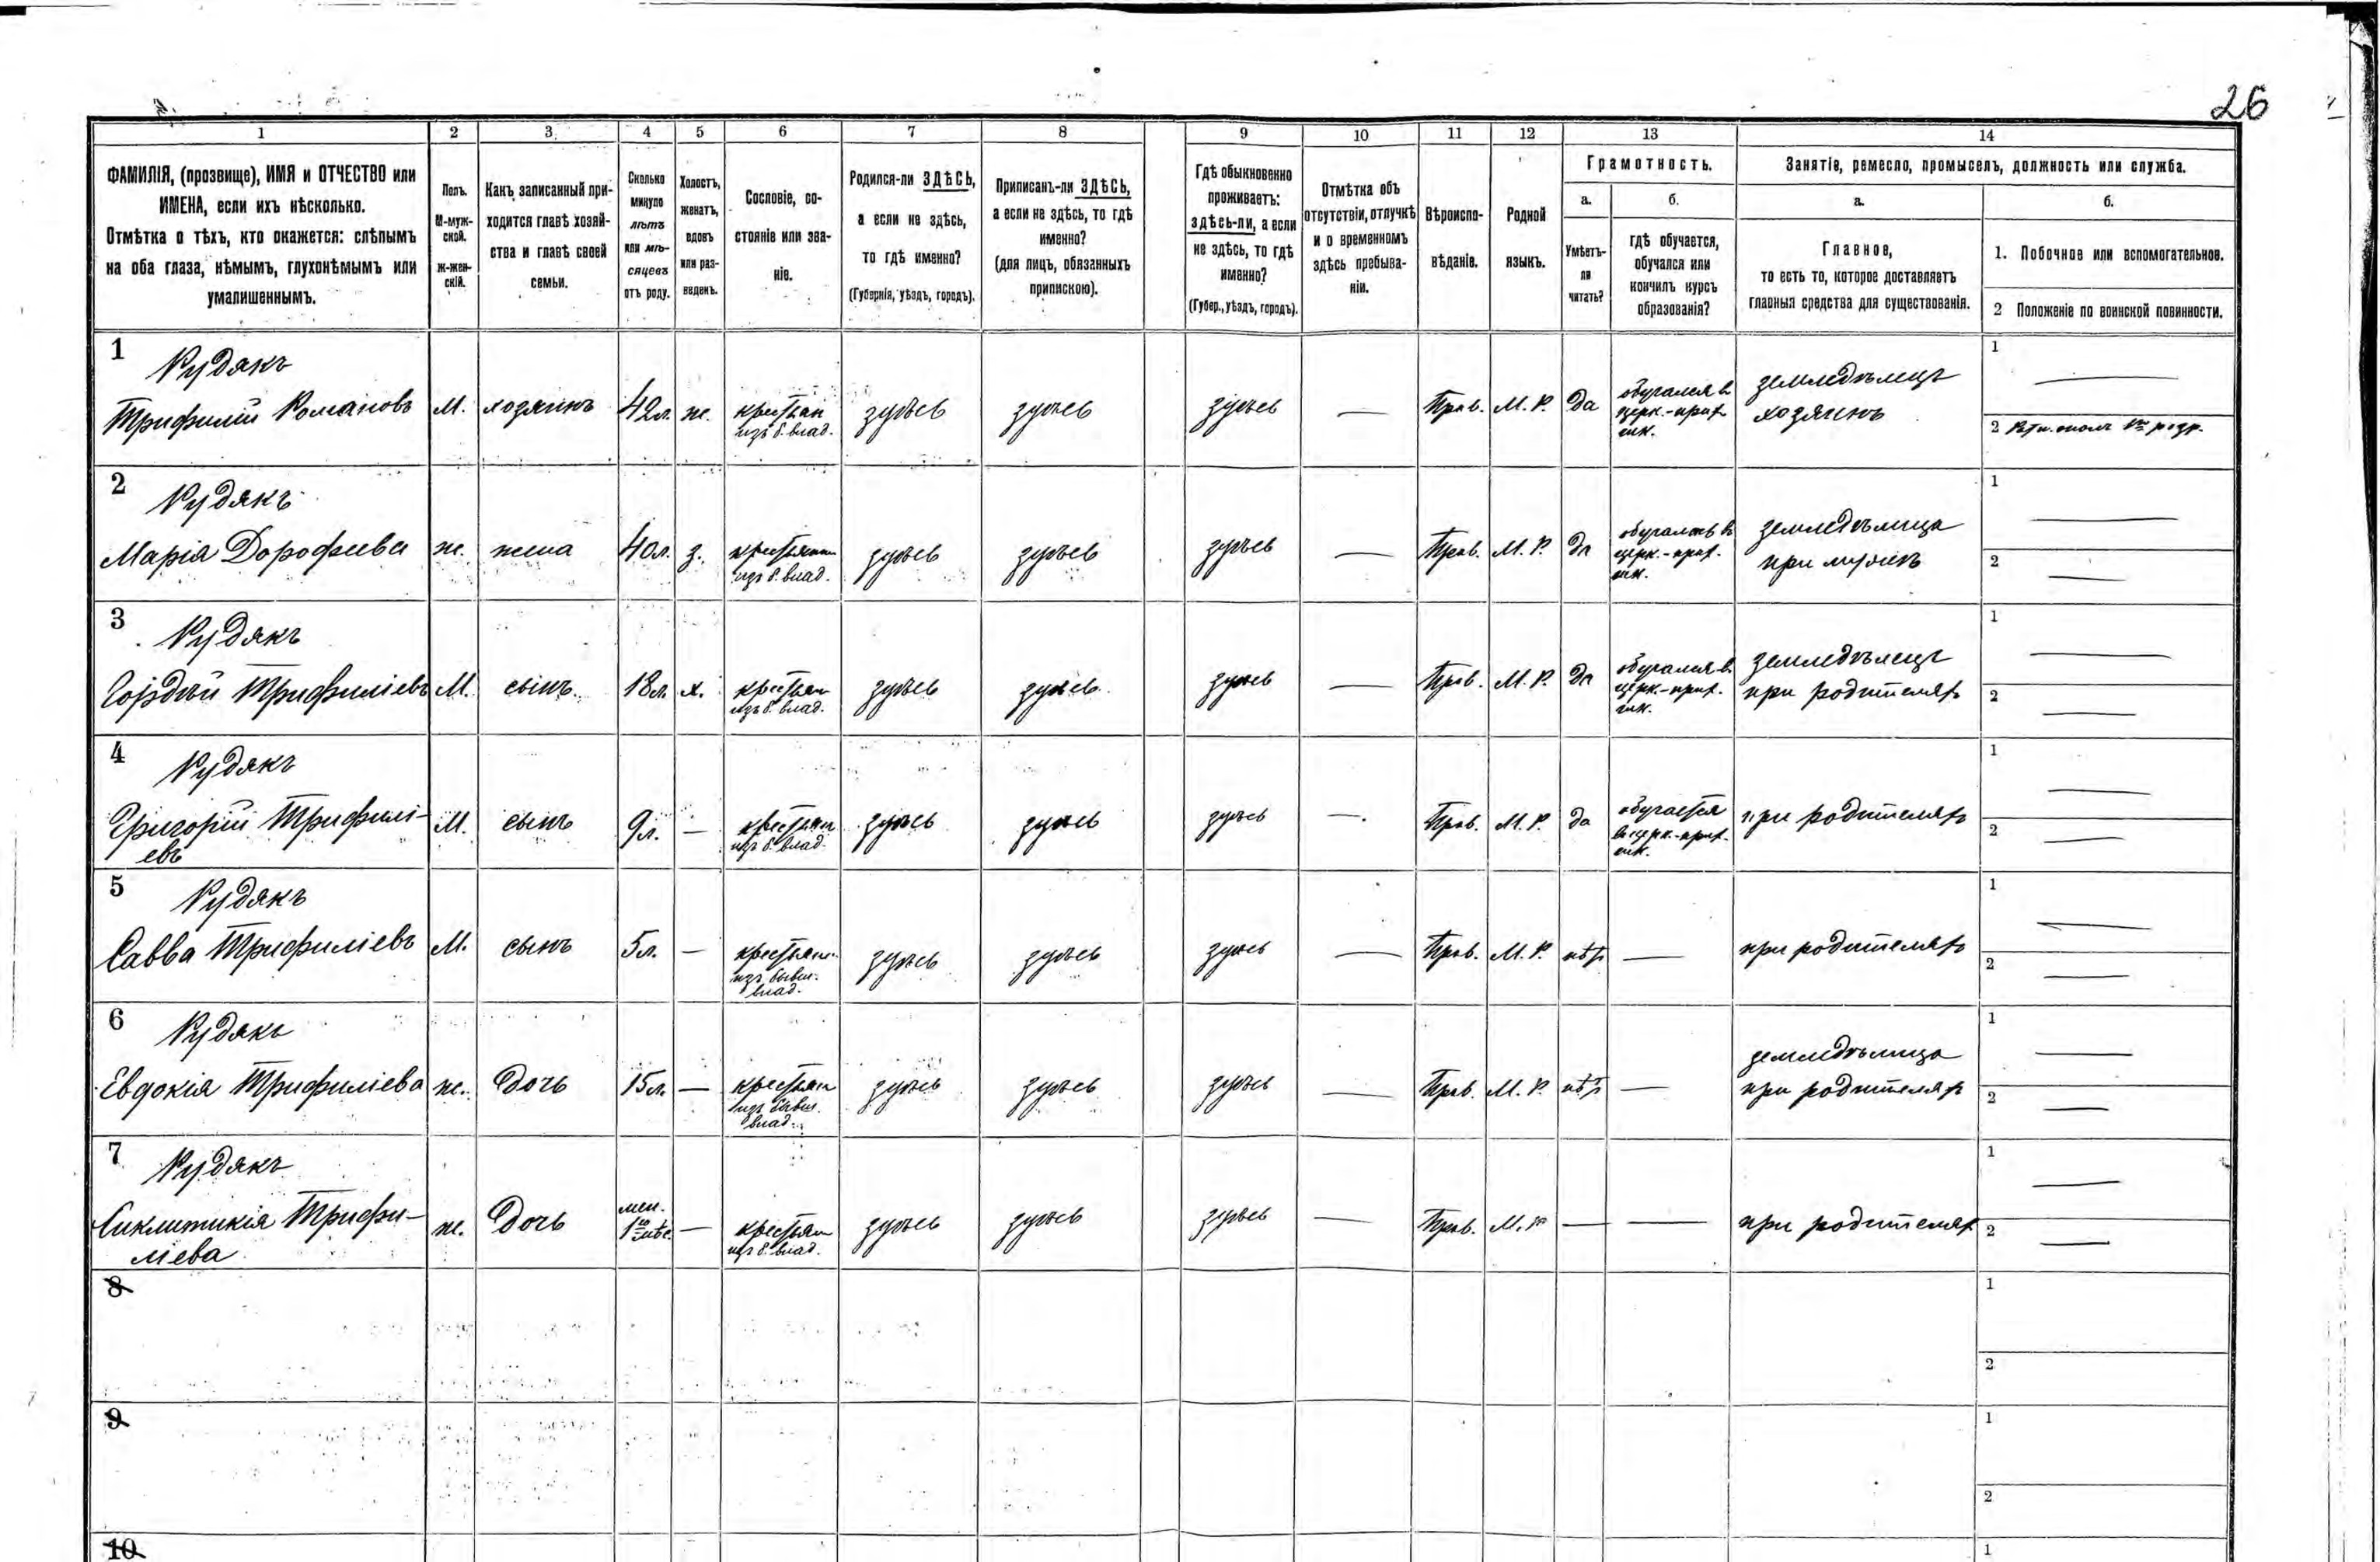 26
1 2 3 4 5 6 7 8 9 10 11 12 13 14
ФАМИЛІЯ, (прозвище), ИМЯ и ОТЧЕСТВО или
ИМЕНА, если ихъ нѣсколько.
Отмѣтка о тѣхъ, кто окажется: слѣпымъ
на оба глаза, нѣмымъ, глухонѣмымъ или
умалишеннымъ.
Полъ.
М-муж-
ской.
Ж-жен-
скій.
Какъ записанный при-
ходится главѣ хозяй-
ства и главѣ своей
семьи.
Сколько
минуло
лѣтъ
или мѣ-
сяцевъ
отъ роду.
Холостъ,
женатъ,
вдовъ
или раз-
веденъ.
Сословіе, со-
стояніе или зва-
ніе.
Родился-ли ЗДѢСЬ,
а если не здѣсь,
то гдѣ именно?
(Губернія, уѣздъ, городъ).
Приписанъ-ли ЗДѢСЬ,
а если не здѣсь, то гдѣ
именно?
(для лицъ, обязанныхъ
припискою).
Гдѣ обыкновенно
проживаетъ:
здѣсь-ли, а если
не здѣсь, то гдѣ
именно?
(Губер., уѣздъ, городъ).
Отмѣтка объ
отсутствіи, отлучкѣ
и о временномъ
здѣсь пребыва-
ніи.
Вѣроиспо-
вѣданіе.
Родной
языкъ.
Грамотность.
а.
Умѣетъ-
ли
читать?
б.
гдѣ обучается,
обучался или
кончилъ курсъ
образованія?
Занятіе, ремесло, промыселъ, должность или служба.
а.
Главное,
то есть то, которое доставляетъ
главныя средства для существованія.
б.
1. Побочное или вспомогательное.
2 Положеніе по воинской повинности.
1
Кудякъ
Трифилій Романовъ
М.
хозяинъ
42л.
ж.
крестьян
изъ б. влад.
здѣсь
здѣсь
здѣсь
—
Прав.
М. Р.
да
обучался в
церк.-прих.
шк.
земледѣлецъ
хозяинъ
1 —
2
2
Кудякъ
Марія Дорофеева
ж.
жена
40л.
з.
крестьянка
изъ б. влад.
здѣсь
здѣсь
здѣсь
—
Прав.
М. Р.
да
обучалась в
церк.-прих.
шк.
земледѣлица
при мужѣ
1 —
2 —
3
Кудякъ
Гордѣй Трифиліевъ
М.
сынъ
18л.
х.
крестьян
изъ б. влад.
здѣсь
здѣсь
здѣсь
—
Прав.
М. Р.
да
обучался в
церк.-прих.
шк.
земледѣлецъ
при родителях
1 —
2 —
4
Кудякъ
Григорій Трифилі-
евъ
М.
сынъ
9л.
—
крестьян
изъ б. влад.
здѣсь
здѣсь
здѣсь
—
Прав.
М. Р.
да
обучается
в церк.-прих.
шк.
при родителях
1 —
2 —
5
Кудякъ
Савва Трифиліевъ
М.
сынъ
5л.
—
крестьян
изъ бывш.
влад.
здѣсь
здѣсь
здѣсь
—
Прав.
М. Р.
нѣт
—
при родителях
1 —
2 —
6
Кудякъ
Евдокія Трифиліева
ж.
дочь
15л.
—
крестьян
изъ бывш.
влад.
здѣсь
здѣсь
здѣсь
—
Прав.
М. Р.
нѣт
—
земледѣлица
при родителях
1 —
2 —
7
Кудякъ
Синклитикія Трифи-
ліева
ж.
дочь
мен.
1го мѣс.
—
крестьян
изъ б. влад.
здѣсь
здѣсь
здѣсь
—
Прав.
М. Р.
—
—
при родителях
1 —
2 —
8
1
2
9
1
2
10
1